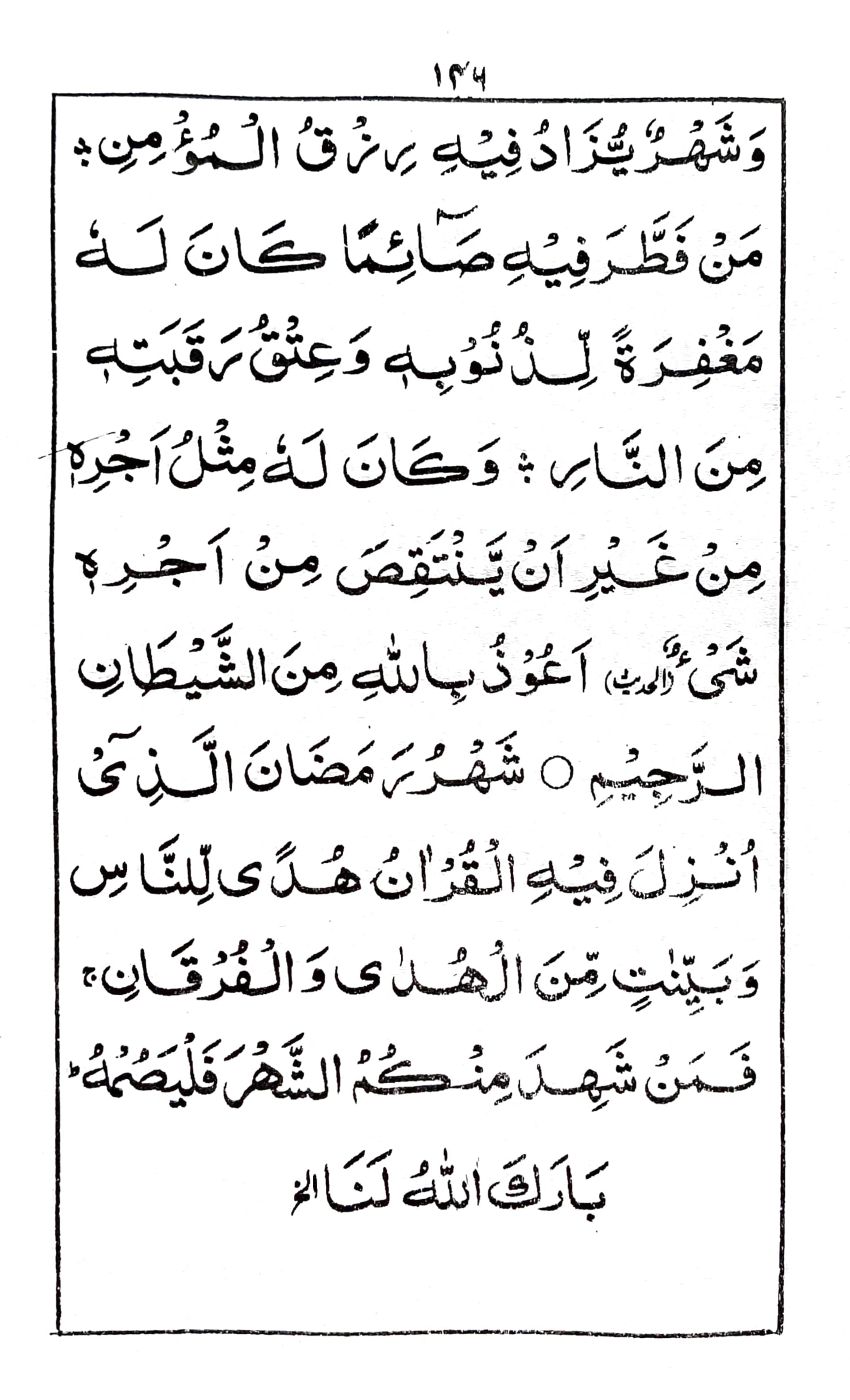 ۱۴۶
وَشَهْرٌ يُّزَادُ فِيْهِ رِزْقُ الْمُؤْمِنِ ؞
مَنْ فَطَّرَ فِيْهِ صَآئِمًا كَانَ لَهٗ
مَغْفِرَةً لِّذُنُوْبِهٖ وَعِتْقُ رَقَبَتِهٖ
مِنَ النَّارِ ؞ وَكَانَ لَهٗ مِثْلُ اَجْرِهٖ
مِنْ غَيْرِ اَنْ يَّنْتَقِصَ مِنْ اَجْرِهٖ
شَىْءٌ (الحديث) اَعُوْذُ بِاللّٰهِ مِنَ الشَّيْطَانِ
الرَّجِيْمِ ○ شَهْرُ رَمَضَانَ الَّذِىْٓ
اُنْزِلَ فِيْهِ الْقُرْاٰنُ هُدًى لِّلنَّاسِ
وَبَيِّنٰتٍ مِّنَ الْهُدٰى وَالْفُرْقَانِ ۚ
فَمَنْ شَهِدَ مِنْكُمُ الشَّهْرَ فَلْيَصُمْهُ ؕ
بَارَكَ اللّٰهُ لَنَا الخ